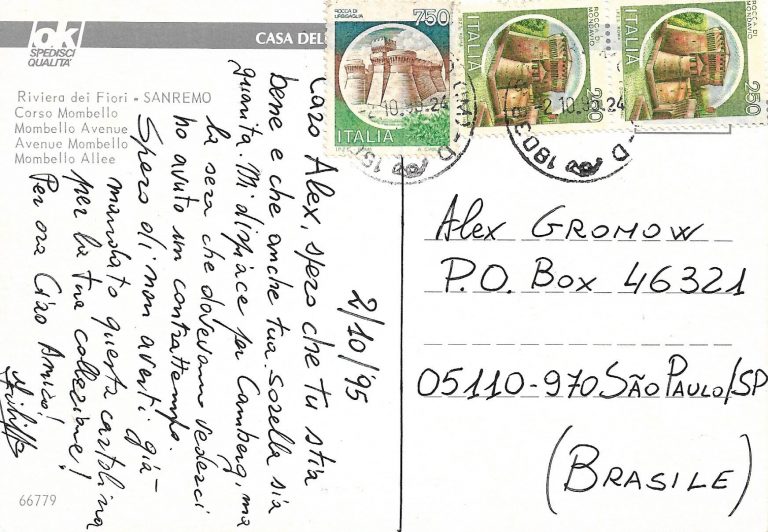 ok
SPEDISCI
QUALITÀ
CASA DEL
Riviera dei Fiori - SANREMO
Corso Mombello
Mombello Avenue
Avenue Mombello
Mombello Allee
2/10/95
Caro Alex, spero che tu stia
bene e che anche tua sorella sia
guarita. Mi dispiace per Camberg, ma
la sera che dovevamo vederci
ho avuto un contrattempo.
Spero di non averti già
mandato questa cartolina
per la tua collezione!
Per ora Ciao Amico!
66779
ROCCA DI
URBISAGLIA
750
ITALIA
ITALIA
ROCCA DI
MONDAVIO
250
ITALIA
ROCCA DI
MONDAVIO
250
2.10.95.24
2.10.95.24
Alex GROMOW
P.O. Box 46321
05110-970 SÃO PAULO/SP
(BRASILE)